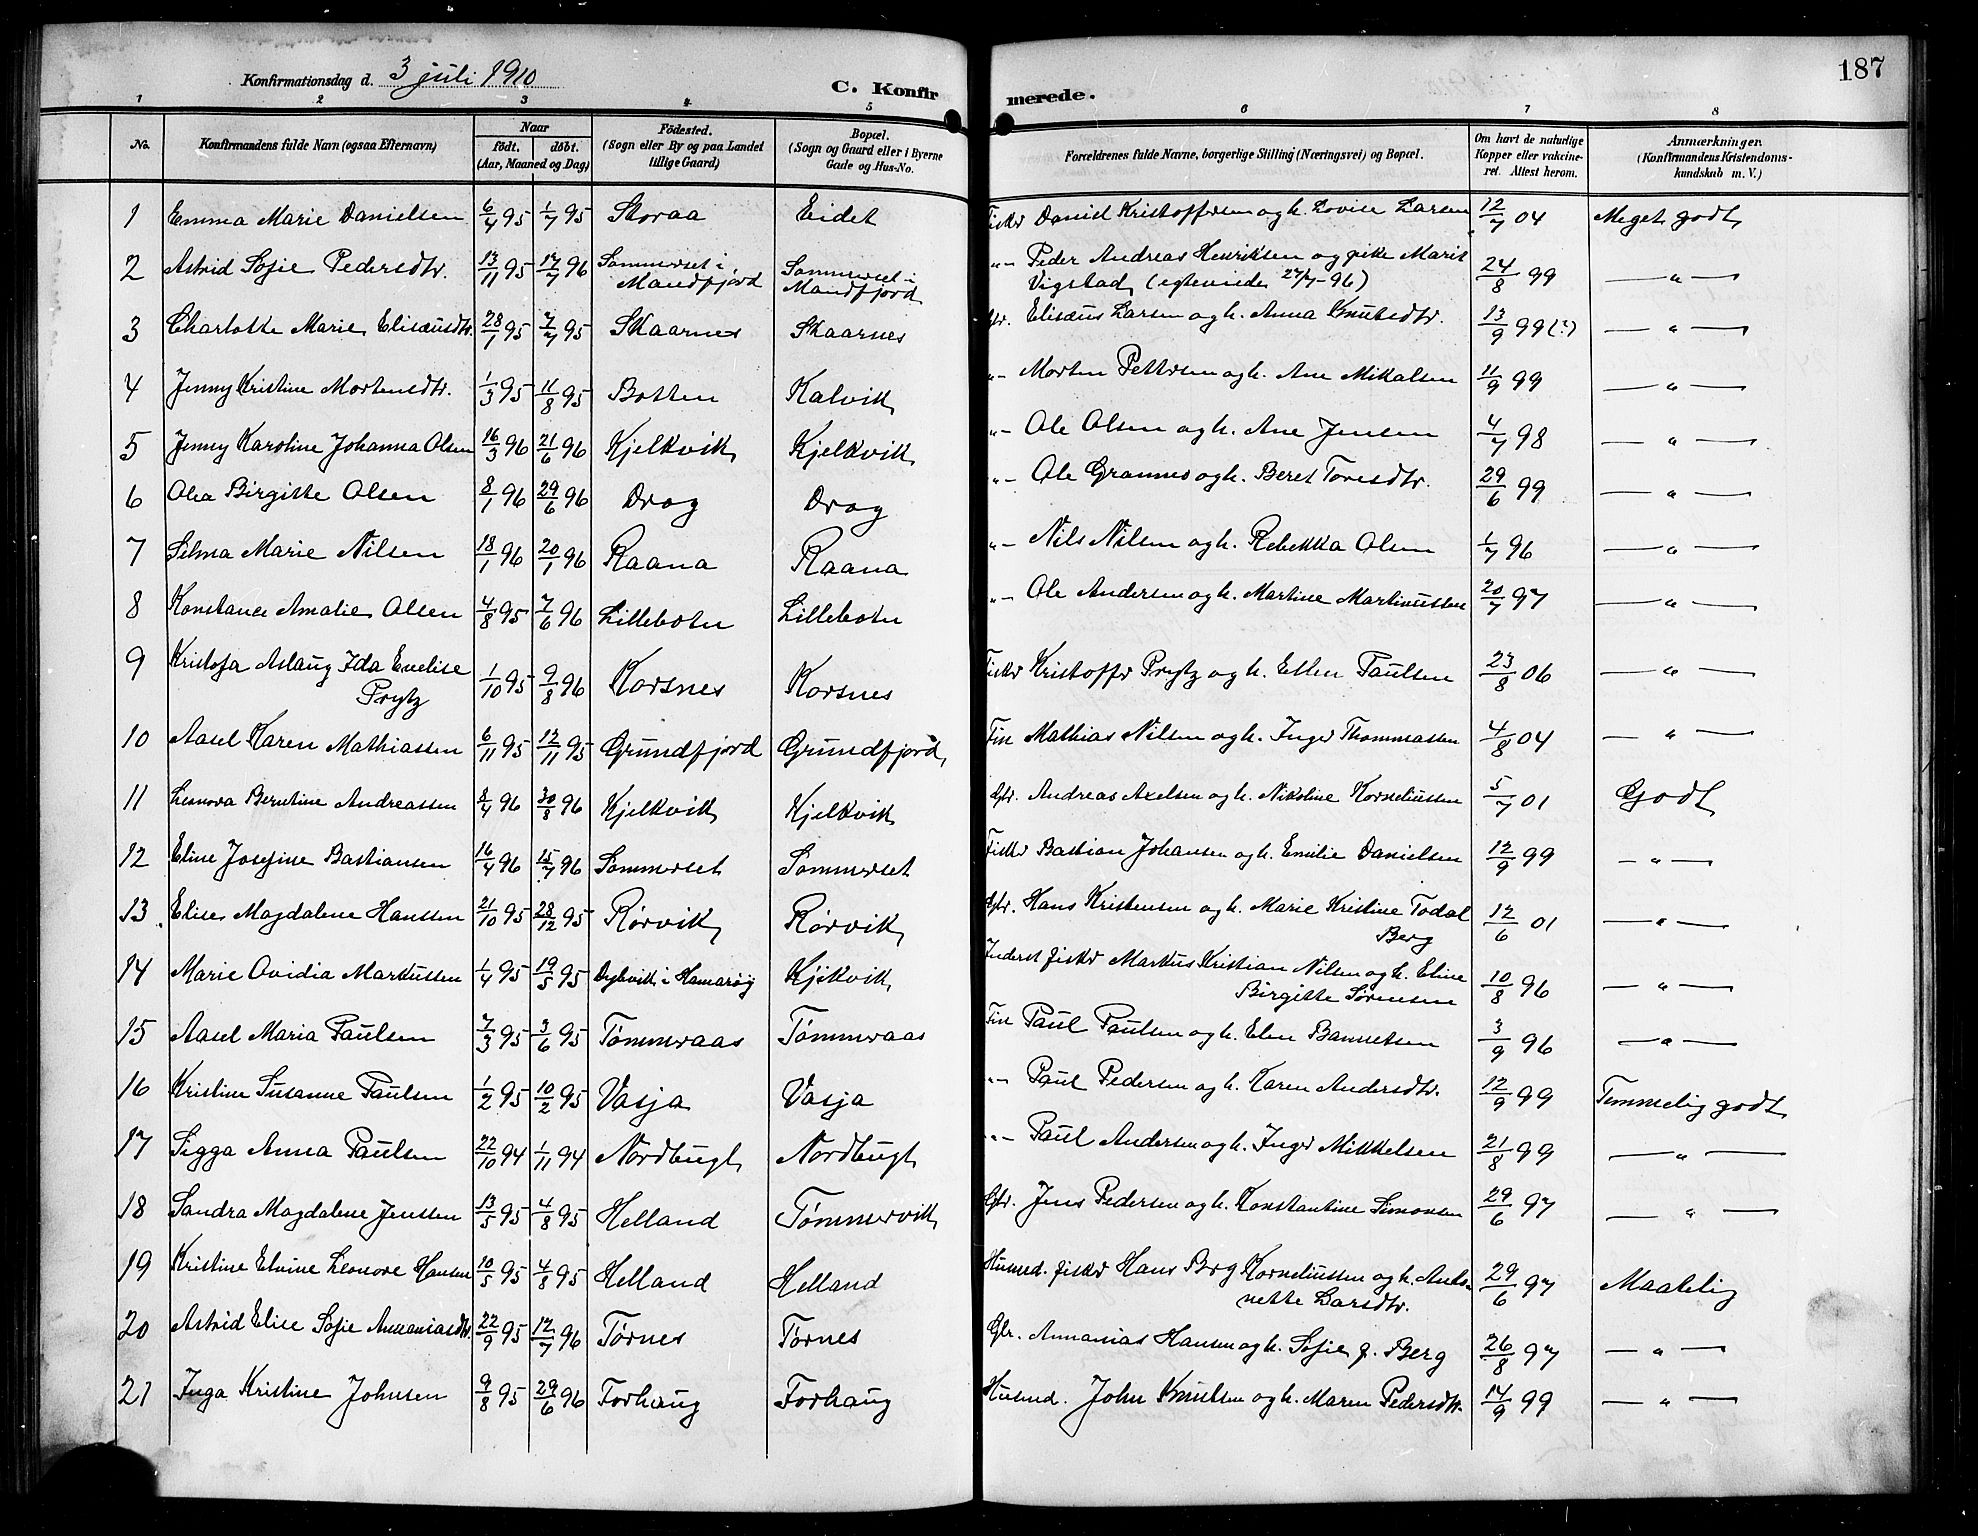 187
Konfirmationsdag d. 3 juli 1910
C. Konfirmerede.
1 2 3 4 5 6 7 8
No. Konfirmandens fulde Navn (ogsaa Efternavn) Naar født. døbt. (Aar, Maaned og Dag) Födested. (Sogn eller By og paa Landet tillige Gaard) Bopæl. (Sogn og Gaard eller i Byerne Gade og Hus-No. Forældrenes fulde Navne, borgerlige Stilling (Næringsvei) og Bopæl. Om havt de naturlige Kopper eller vakcineret. Attest herom. Anmærkninger. (Konfirmandens Kristendomskundskab m. V.)
1 Emma Marie Danielsen 6/4 95 1/7 95 Storaa Eidet Fisker Daniel Kristoffersen og h. Lovise Larsen 12/7 04 Meget godt
2 Astrid Sofie Pedersdtr. 13/11 95 17/7 96 Sommerset i Mandfjord Sommerset i Mandfjord "- Peder Andreas Henriksen og pike Marit
Vigstad (egteviede 27/7-96) 24/8 99 — " —
3 Charlotte Marie Elisæusdtr. 28/1 95 7/7 95 Skaarnes Skaarnes Gbr. Elisæus Larsen og h. Anna Knutsdtr. 13/9 99 (?) — " —
4 Jenny Kristine Mortensdtr. 1/3 95 11/8 95 Botten Kalvik "- Morten Pettersen og h. Ane Mikalsen 11/9 99 — " —
5 Jenny Karoline Johanna Olsen 16/3 96 21/6 96 Kjelkvik Kjelkvik "- Ole Olsen og h. Ane Jensen 4/7 98 — " —
6 Olea Birgitte Olsen 8/1 96 29/6 96 Drag Drag "- Ole Grannes og h. Beret Toresdtr. 29/6 99 — " —
7 Selma Marie Nilsen 18/1 96 20/1 96 Raana Raana "- Nils Nilsen og h. Rebekka Olsen 1/7 96 — " —
8 Konstance Amalie Olsen 4/8 95 7/6 96 Lilleboten Lilleboten "- Ole Andersen og h. Martine Martinussen 20/7 97 — " —
9 Kristofa Aslaug Ida Enelise
Prytz 1/10 95 9/8 96 Korsnes Korsnes Fisker Kristoffer Prytz og h. Ellen Paulsen 23/8 06 — " —
10 Aasel Karen Mathiassen 6/11 95 12/11 95 Grundfjord Grundfjord Fin Mathias Nilsen og h. Inger Thommassen 4/8 04 — " —
11 Leonora Berntine Andreassen 8/4 96 30/8 96 Kjelkvik Kjelkvik Gbr. Andreas Axelsen og h. Nikoline Korneliussen 5/7 01 Godt
12 Eline Josefine Bastiansen 16/4 96 15/7 96 Sommerset Sommerset Fisker Bastian Johansen og h. Emilie Danielsen 12/9 99 — " —
13 Elise Magdalene Hanssen 21/10 95 28/12 95 Rørvik Rørvik Gbr. Hans Kristensen og h. Marie Kristine Todal
Berg 12/6 01 — " —
14 Marie Ovidia Markussen 1/4 95 19/5 95 Dybvik i Hamarøy Kjelkvik Inderst fisker Markus Kristian Nilsen og h. Eline
Birgitte Sørensen 10/8 96 — " —
15 Aasel Maria Paulsen 7/3 95 3/6 95 Tømmeraas Tømmeraas Fin Paul Paulsen og h. Elen Bannetsen 3/9 96 — " —
16 Kristine Susanne Paulsen 1/2 95 10/2 95 Vasja Vasja "- Paul Pedersen og h. Karen Andersdtr. 12/9 99 Temmelig godt
17 Sigga Anna Paulsen 22/10 94 1/11 94 Nordbugt Nordbugt "- Paul Andersen og h. Inger Mikkelsen 21/8 99 — " —
18 Sandra Magdalene Jenssen 13/5 95 4/8 95 Helland Tømmervik Gbr. Jens Pedersen og h. Konstantine Simonsen 29/6 97 — " —
19 Kristine Elvine Leonore Hansen 10/5 95 4/8 95 Helland Helland Husmd. fisker Hans Berg Korneliussen og h. Antonette
Larsdtr. 29/6 97 Maadelig
20 Astrid Elise Sofie Ananiasdtr. 22/9 95 12/7 96 Tørnes Tørnes Gbr. Annanias Hansen og h. Sofie f. Berg 26/8 97 — " —
21 Inga Kristine Johnsen 9/8 95 29/6 96 Forhaug Forhaug Husmd. John Knutsen og h. Maren Pedersdtr. 14/9 99 — " —